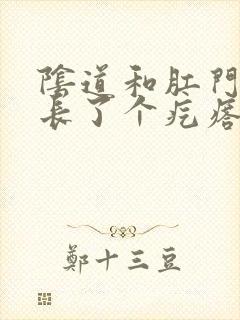 陰道和肛門
長了个疙瘩
鄭十三豆